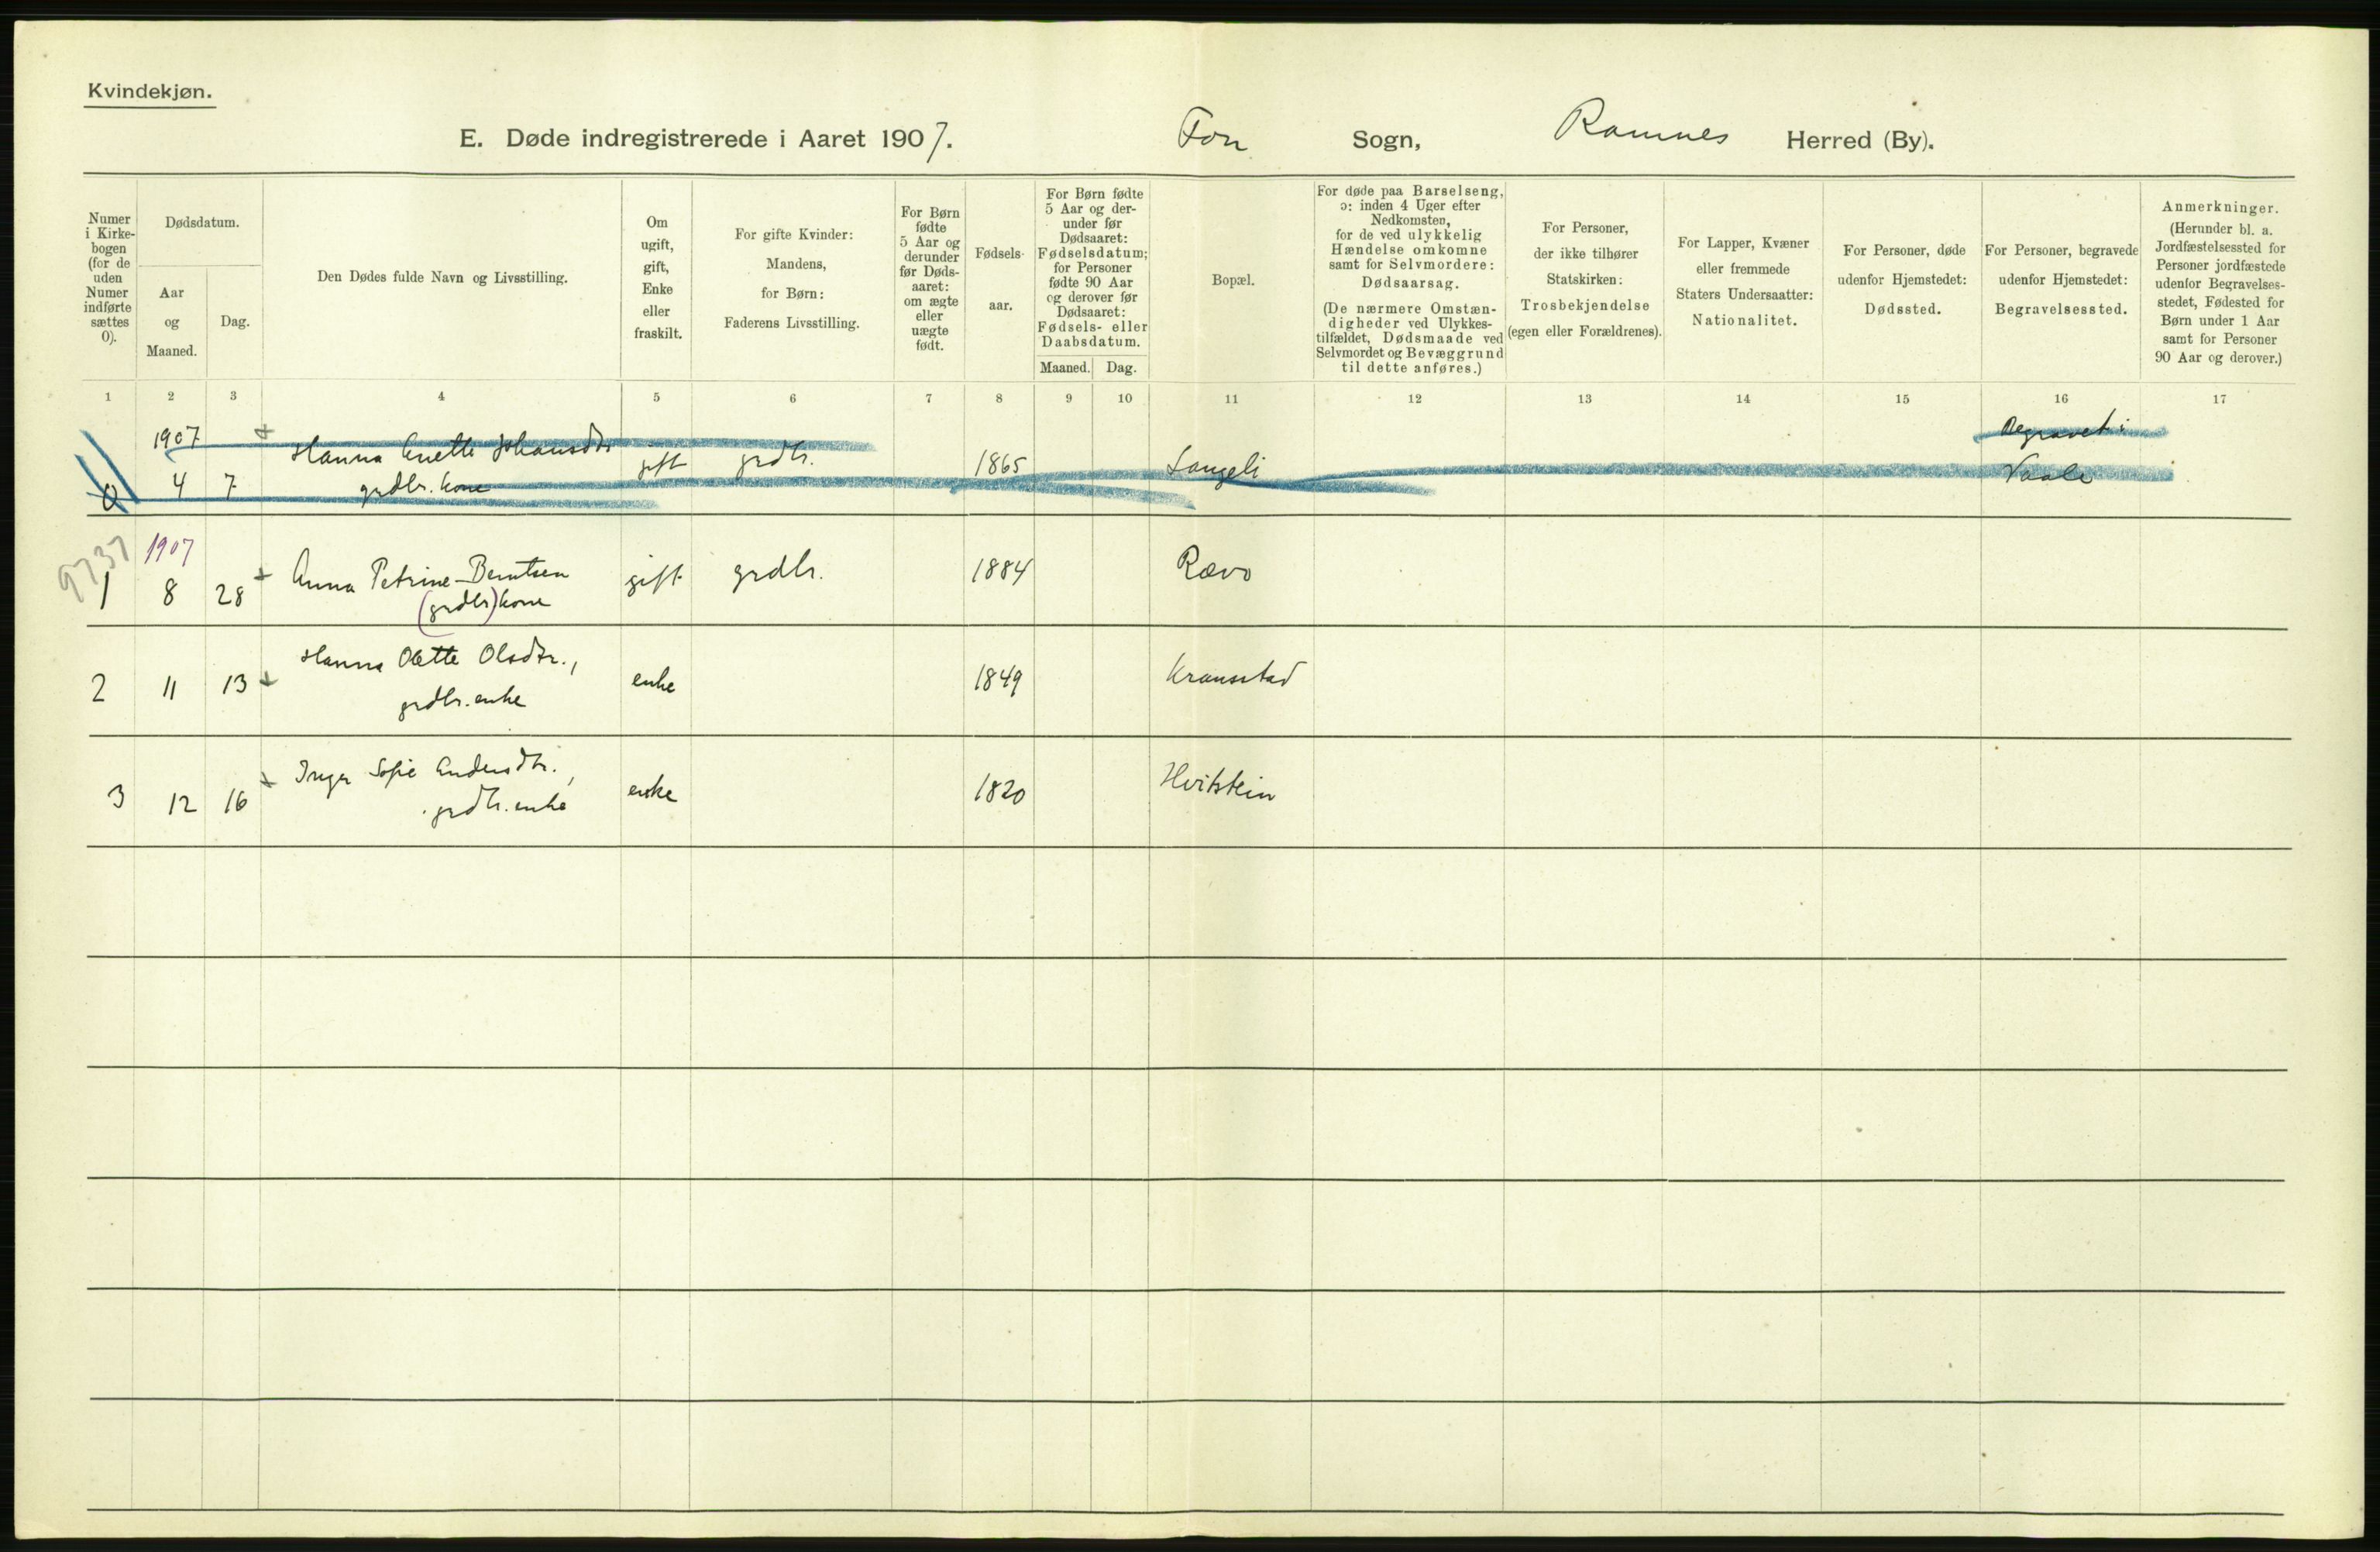 Kvindekjøn.
E. Døde indregistrerede i Aaret 1907. Fon Sogn, Ramnes Herred (By).
Numer
i Kirke-
bogen
(for de
uden
Numer
indførte
sættes
0).
Dødsdatum.
Aar
og
Maaned.
Dag.
Den Dødes fulde Navn og Livsstilling.
Om
ugift,
gift,
Enke
eller
fraskilt.
For gifte Kvinder:
Mandens,
for Børn:
Faderens Livsstilling.
For Børn
fødte
5 Aar og
derunder
før Døds-
aaret:
om ægte
eller
uægte
født.
Fødsels-
aar.
For Børn fødte
5 Aar og der-
under før
Dødsaaret:
Fødselsdatum;
for Personer
fødte 90 Aar
og derover før
Dødsaaret:
Fødsels- eller
Daabsdatum.
Maaned. Dag.
Bopæl.
For døde paa Barselseng,
ɔ: inden 4 Uger efter
Nedkomsten,
for de ved ulykkelig
Hændelse omkomne
samt for Selvmordere:
Dødsaarsag.
(De nærmere Omstæn-
digheder ved Ulykkes-
tilfældet, Dødsmaade ved
Selvmordet og Bevæggrund
til dette anføres.)
For Personer,
der ikke tilhører
Statskirken:
Trosbekjendelse
(egen eller Forældrenes).
For Lapper, Kvæner
eller fremmede
Staters Undersaatter:
Nationalitet.
For Personer, døde
udenfor Hjemstedet:
Dødssted.
For Personer, begravede
udenfor Hjemstedet:
Begravelsessted.
Anmerkninger.
(Herunder bl. a.
Jordfæstelsessted for
Personer jordfæstede
udenfor Begravelses-
stedet, Fødested for
Børn under 1 Aar
samt for Personer
90 Aar og derover.)
1 2 3 4 5 6 7 8 9 10 11 12 13 14 15 16 17
1907 + Hanna Anette Johansdtr Begravet i
0 4 7 grdbr. kone gift grdbr. 1865 Langeli Vaale
9737 1907
1 8 28 + Anna Petrine Berntsen gift grdbr. 1884 Rævo
(grdbr) kone
Hanna Olette Olsdtr.,
2 11 13 + grdbr. enke enke 1849 Kransstad
+ Inger Sofie Andersdtr.,
3 12 16 grdbr. enke enke 1820 Hvitstein